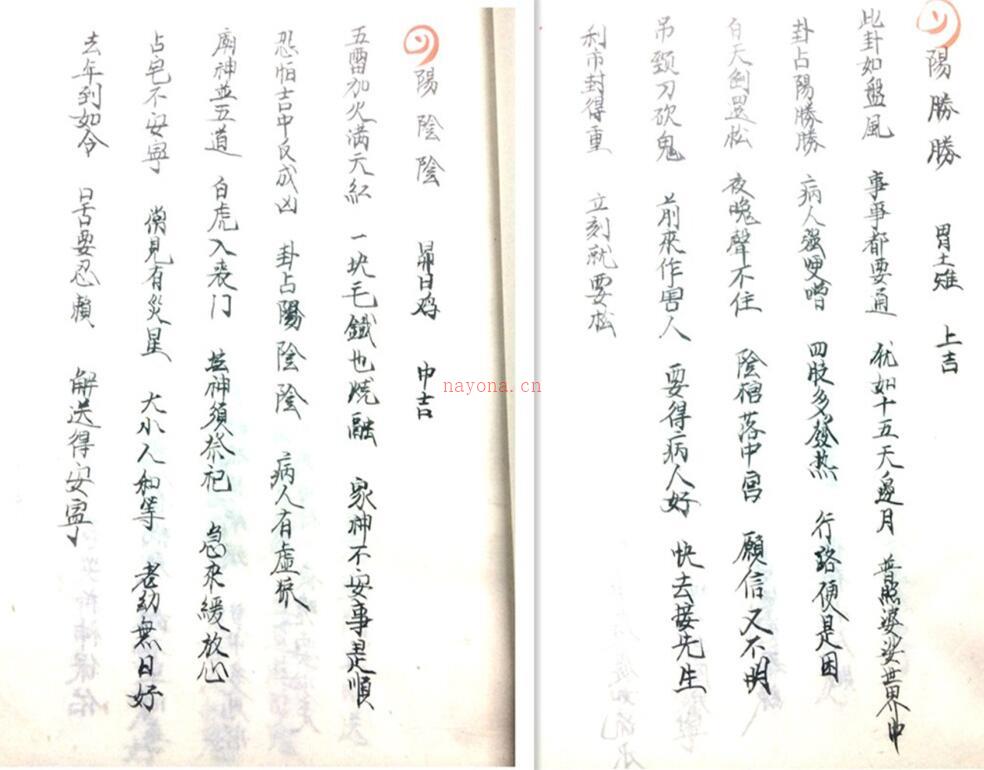 陽勝勝 胃土雉 上吉
此卦如盤風 事事都要通 犹如十五天邊月 普照婆娑世界中
卦占陽勝勝 病人强哽噌 四肢多發热 行路便是困
白天倒還松 夜晚聲不住 陰棺落中宫 願信又不明
吊颈刀砍鬼 前來作害人 要得病人好 快去接先生
利市封得重 立刻就要松
陽陰陰 昴日鸡 中吉
五雷加火满天紅 一块毛鐵也燒融 家神不安事是順
忍怕吉中反成凶 卦占陽陰陰 病人有虚驚
廟神並五道 白虎入丧门 神須祭祀 急來緩放心
占宅不安寧 常見有災星 大小人和等 老幼無日好
去年到如今 口舌要忍賴 解送得安寧
nayona.cn